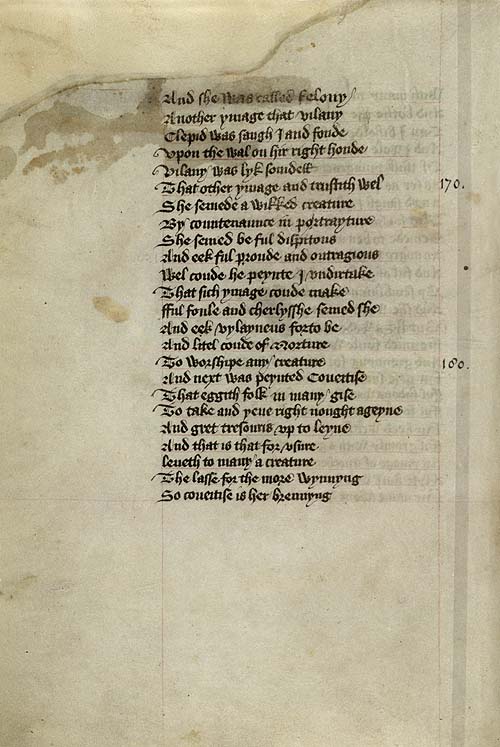 And she was called Felony
Another ymage that vilany
Clepid was saugh I and fonde
Vpon the wal on hir right honde
Vilany was lyk somdell
That other ymage and trustith wel 170.
She semede a wikked creature
By countenaunce in portrayture
She semed be ful dispitous
And eek ful proude and outragious
Wel coude he peynte I vndirtake
That sich ymage coude make
fful foule and cherlysshe semed she
And eek vylayneus forto be
And litel coude of Norture
To worshipe any creature 180.
And next was peynted Coueitise
That eggith folk in many gise
To take and yeue right nought ageyne
And gret tresouris vp to leyne
And that is that for vsure
leneth to many a creature
The lasse for the more wynnyng
So coueitise is her brennyng